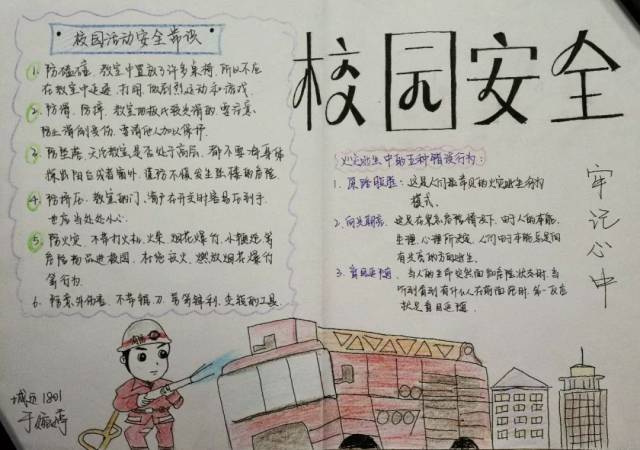 校园安全
校园活动安全常识
1. 防磕碰。教室中置放了许多桌椅,所以不应
在教室中追逐、打闹,做剧烈运动和游戏
2. 防滑、防摔。教室地板比较光滑的要注意
防止滑倒受伤,
3. 防坠落。无论教室是否处于高层,都不要将身体
探出阳台或者窗外,谨防不慎发生坠楼的危险
4. 防挤压。教室的门、窗户在开关时容易压到手,
也应当处处小心。
5. 防火灾。不带打火机、火柴、烟花爆竹、小鞭炮等
危险物品进校园,杜绝玩火、燃放烟花爆竹
等行为。
6. 防意外伤害。不带锥、刀、剪等锋利、尖锐的工具,
火灾逃生中的五种错误行为:
1. 原路脱险:这是人们最常见的火灾逃生行为
模式。
2. 向光朝亮。这是在紧急危险情况下,由于人的本能、
生理、心理所决定,人们
有光亮的方向逃生。
3. 盲目追随。当人的生命突然面临危险状态时,
听到看到有什么人在前面跑时,第一反应
就是盲目追随。
牢记心中
1801